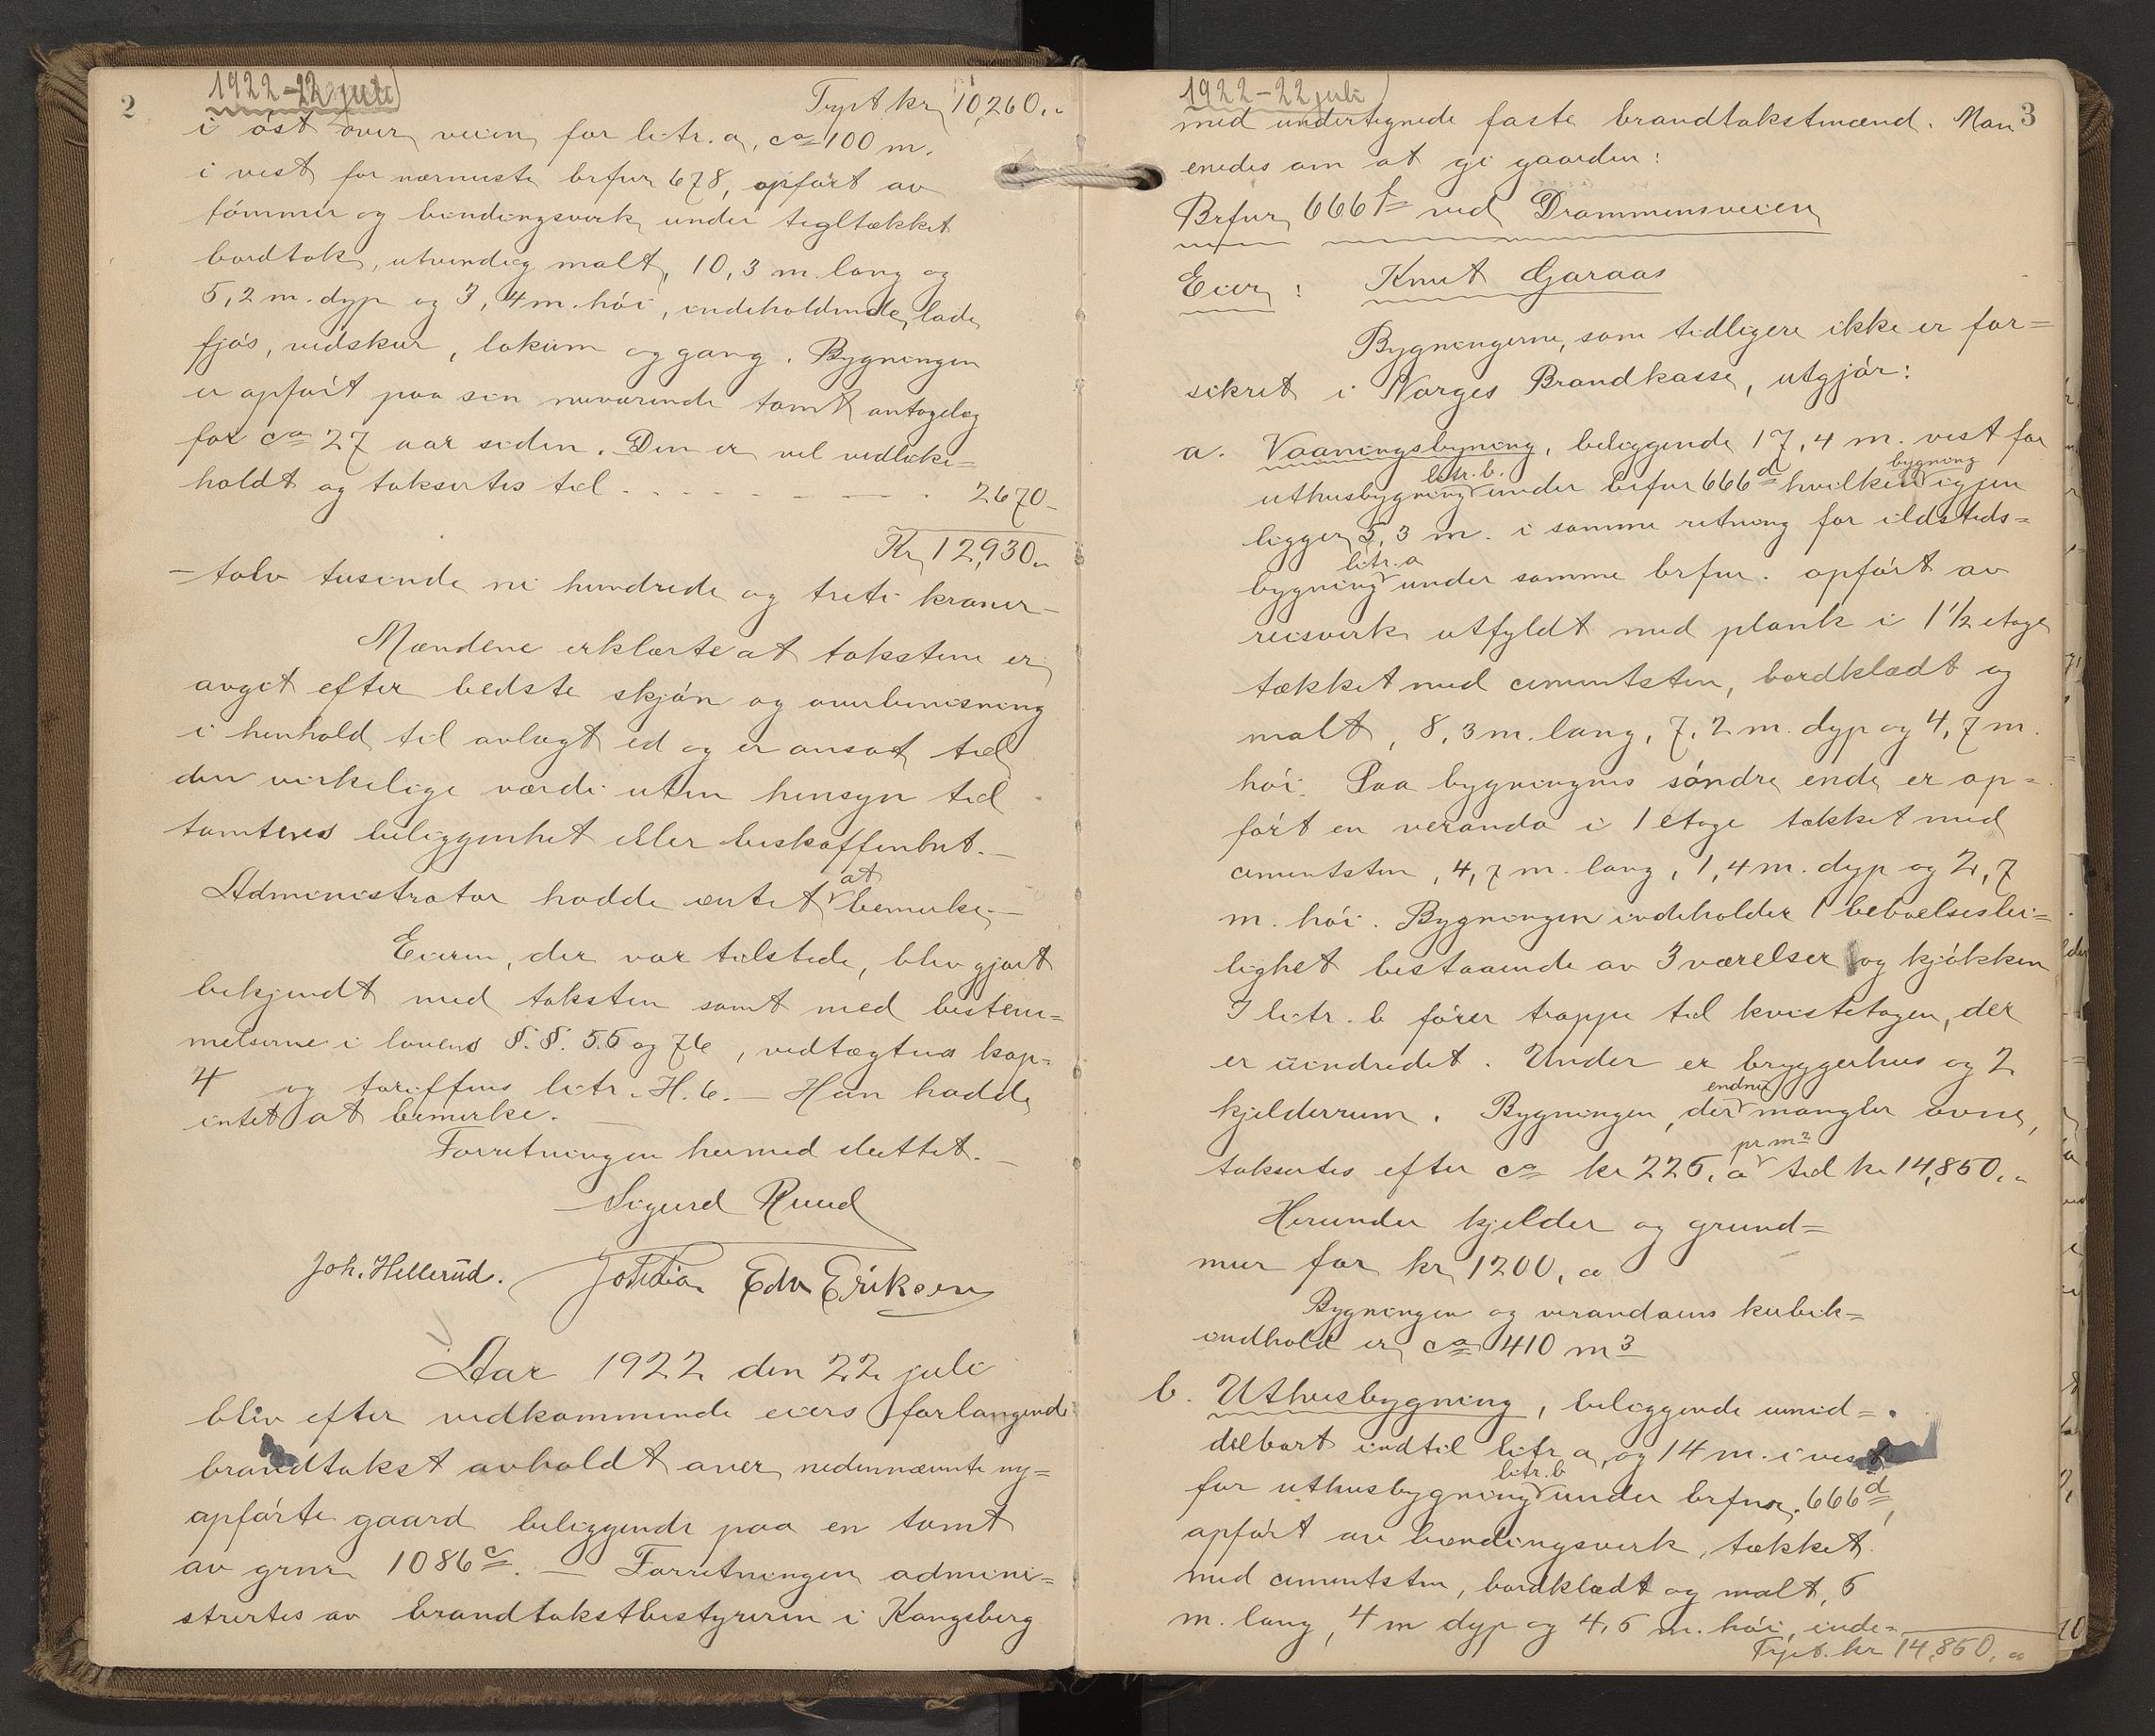 2
1922-22 juli
Trpt. kr 10,260.-
i øst over veien for litr. a, ca 100 m.
i vest for nærmeste brfnr 678, opført av
tømmer og bindingsverk under tegltækket
bordtak, utvendig malt, 10,3 m. lang og
5,2 m. dyp og 3,4 m. høi, indeholdende lade,
fjøs, vedskur, lokum og gang. Bygningen
er opført paa sin nuværende tomt antagelig
for ca 27 aar siden. Den er vel vedlike=
holdt og taksertes til . - - - - - - - . 2670-
Kr 12,930.-
- tolv tusinde ni hundrede og treti kroner -
Mændene erklærte at taksten er
avgit efter bedste skjøn og overbevisning
i henhold til avlagt ed og er ansat til
den virkelige værdi uten hensyn til
tomtens beliggenhet eller beskaffenhet. -
Administrator hadde intet at bemerke. -
Eieren, der var tilstede, blev gjort
bekjendt med taksten samt med bestem=
melserne i lovens §.§. 55 og 76, vedtægtens kap.
4 og tariffens litr. H. 6. - Han hadde
intet at bemerke. -
Forretningen hermed sluttet. -
Sigurd Ruud
Joh. Hellerud. Edv Eriksen
Aar 1922 den 22 juli
blev efter vedkommende eiers forlangende
brandtakst avholdt over nedennævnte ny=
opførte gaard beliggende paa en tomt
av grnr 1086 c. - Forretningen admini=
strertes av brandtakstbestyreren i Kongsberg
3
1922-22 juli
med undertegnede faste brandtakstmænd. Man
enedes om at gi gaarden:
Brfnr 666 f ved Drammensveien
Eier: Knut Garaas
Bygningerne, som tidligere ikke er for=
sikret i Norges Brandkasse, utgjør:
a. Vaaningsbyning, beliggende 17,4 m. vest for
uthusbygning litr. b. under brfnr 666 d hvilken bygning igjen
ligger 5,3 m. i samme retning for ildsteds=
bygning litr. a under samme brfnr. opført av
reisverk utfyldt med plank i 1½ etage
tækket med cementsten, bordklædt og
malt, 8,3 m. lang, 7,2 m. dyp og 4,7 m.
høi. Paa bygningens søndre ende er op=
ført en veranda i 1 etage tækket med
cementsten, 4,7 m. lang, 1,4 m. dyp og 2,7
m. høi. Bygningen indeholder 1 beboelseslei=
lighet bestaaende av 3 værelser og kjøkken
I litr. b fører trappe til kvistetagen, der
er uindredet. Under er bryggerhus og 2
kjelderrum. Bygningen, der endnu mangler ovne,
taksertes efter ca kr 225,- pr m² til kr 14,850.-
Herunder kjelder og grund=
mur for kr 1200,-
Bygningen og verandaens kubik=
indhold er ca 410 m3
b. Uthusbygning, beliggende umid=
delbart indtil litr a, og 14 m. i vest
for uthusbygning litr. b under brfnr. 666 d,
opført av bindingsverk, tækket
med cementsten, bordklædt og malt, 5
m. lang, 4 m dyp og 4,5 m. høi, inde=
Trpt. kr 14,850.-